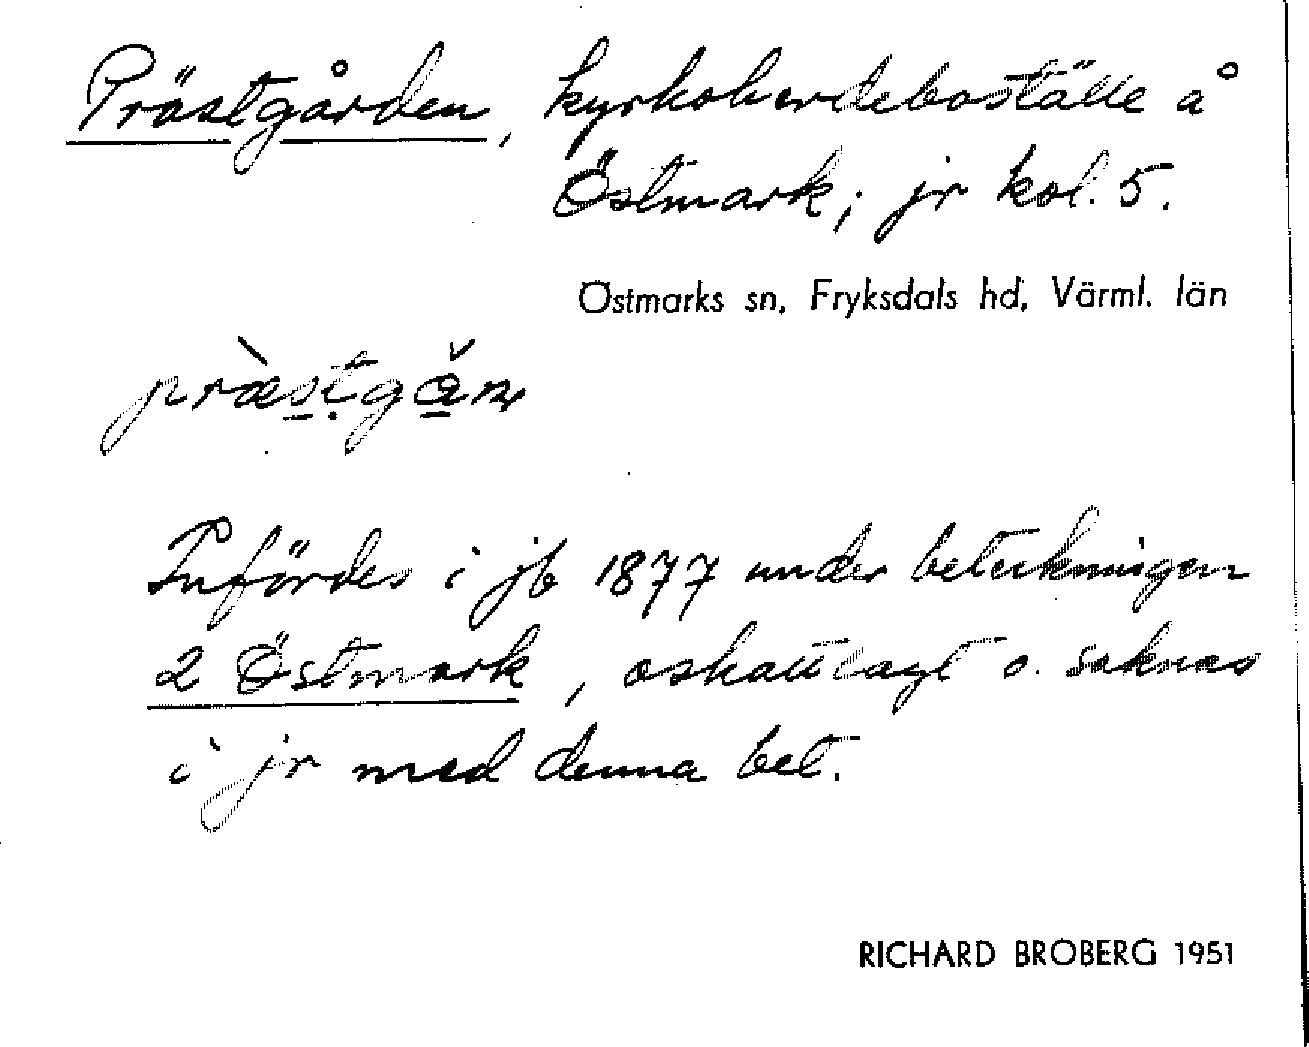 Prästgården, kyrkoherdeboställe å
Östmark; jr kol. 5.
Östmarks sn, Fryksdals hd, Värml. län
præstgån
Infördes i jb 1877 under beteckningen
2 Östmark, oskattlagt o. saknas
i jr med denna bet.
RICHARD BROBERG 1951